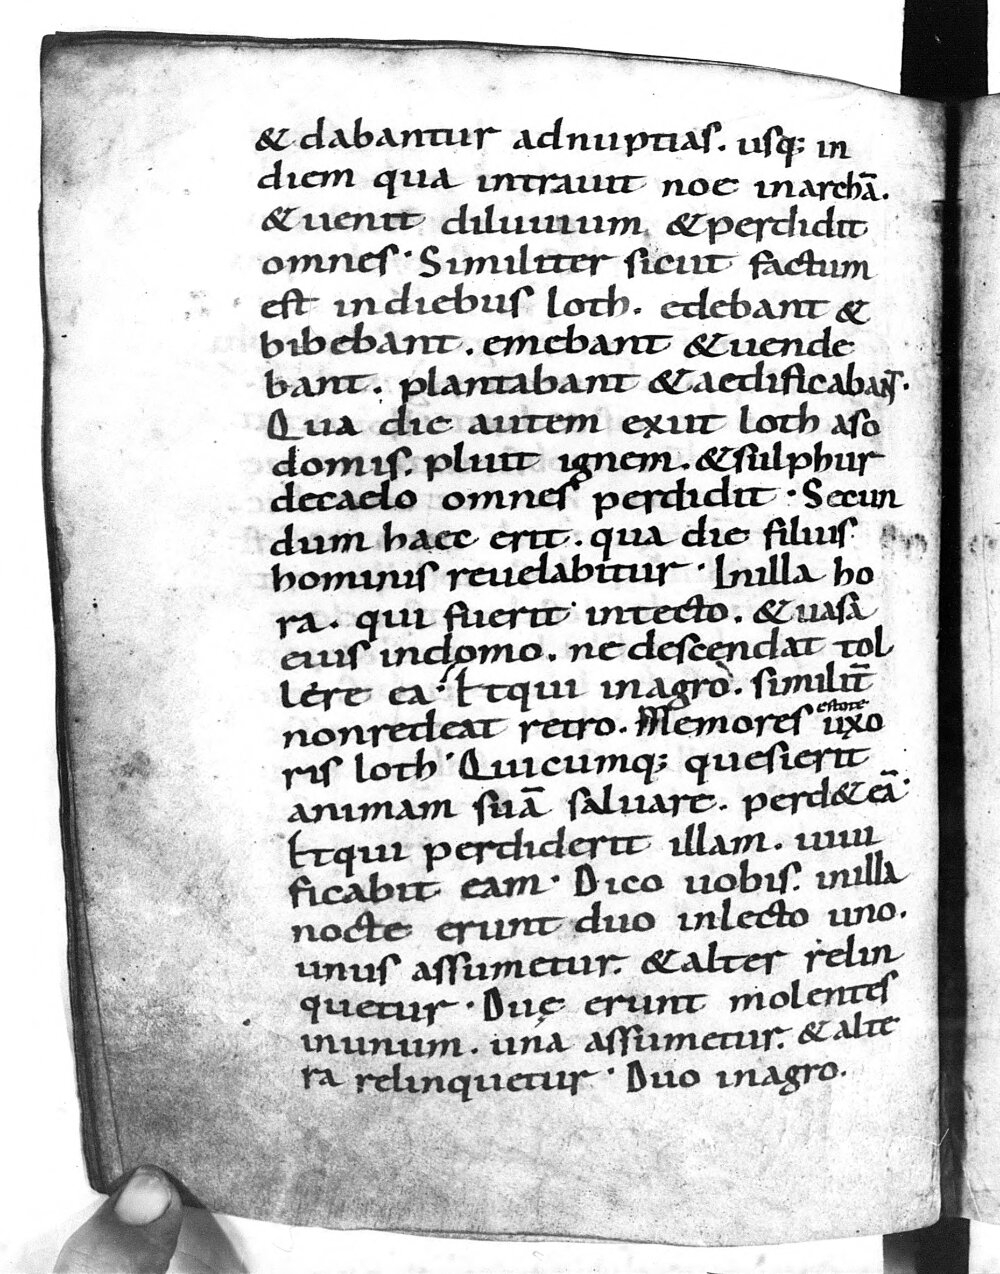 & dabantur adnuptias. usq; in
diem qua intrauit noe inarchā.
& uenit diluuium, & perdidit
omnes· Similiter sicut factum
est indiebus loth. edebant &
bibebant. emebant & uende
bant. plantabant & aedificabant.
Qua die autem exiit loth aso
domis. pluit ignem. & sulphur
decaelo omnes perdidit· Secun
dum haec erit. qua die filius
hominis reuelabitur· Inilla ho
ra. qui fuerit intecto. & uasa
eius indomo. ne descendat tol
lere ea· Etqui inagro. similit̄
nonredeat retro. Memores estote uxo
ris loth· Quicumq; quesierit
animam suā saluare. perd& eā·
Etqui perdiderit illam. uiui
ficabit eam· Dico uobis. inilla
nocte erunt duo inlecto uno.
unus assumetur. & alter relin
quetur· Duę erunt molentes
inunum. una assumetur. & alte
ra relinquetur· Duo inagro.